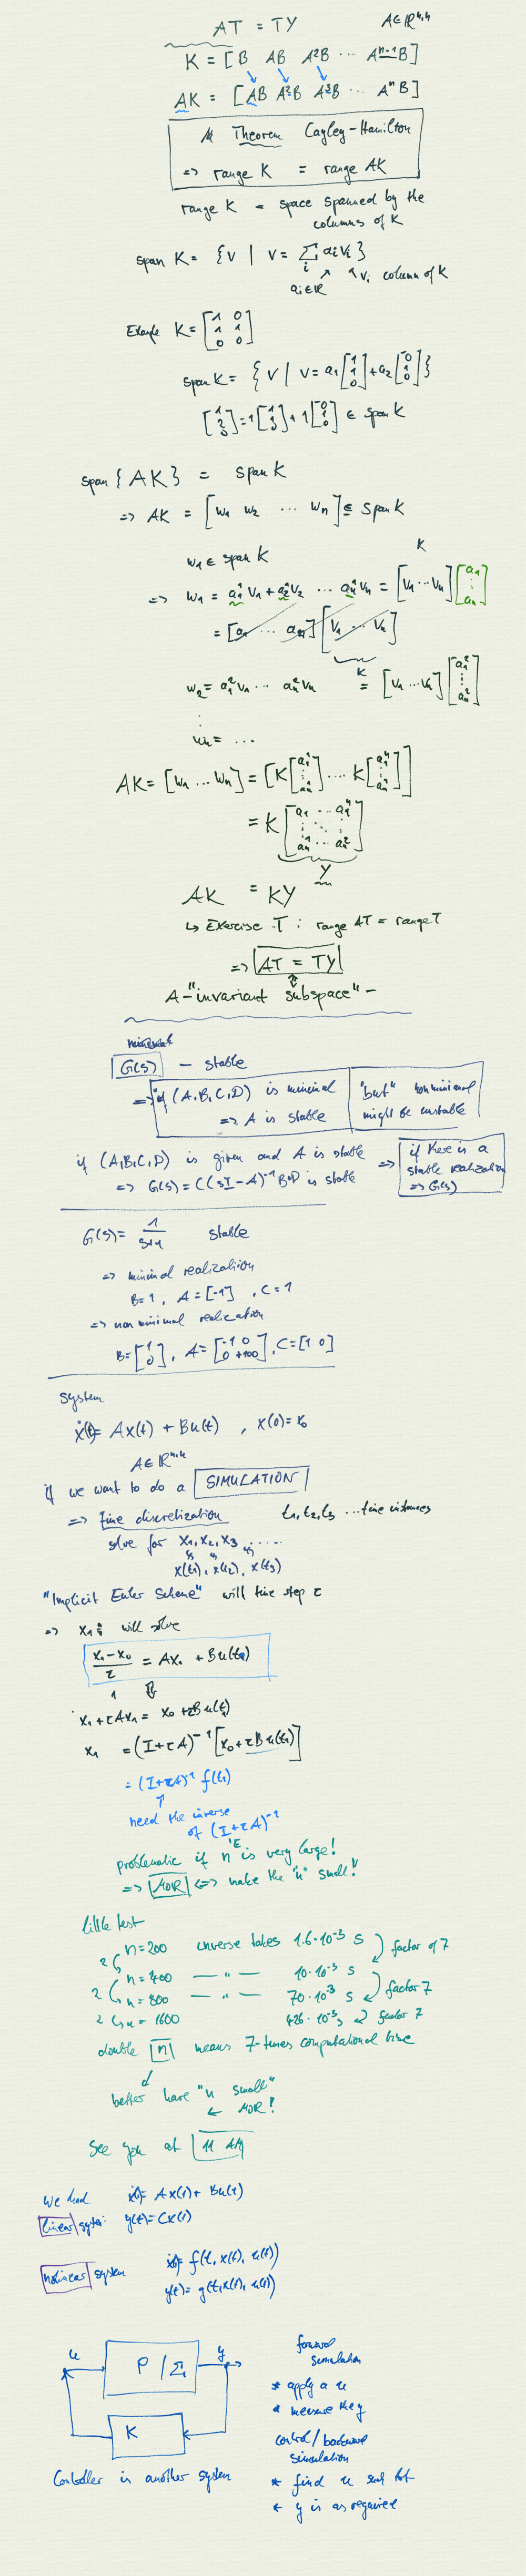 AT = TY    A∈ℝ^{n,n}
K = [B  AB  A²B ⋯ A^{n-1}B]
AK = [AB  A²B  A³B ⋯ A^nB]
Theorem Cayley-Hamilton
=> range K = range AK
range K = space spanned by the
columns of K
span K = {v | v = Σ_i a_i v_i}
a_i∈ℝ   v_i column of K
Example K = [1 0; 1 1; 0 0]
span K = {v | v = a₁[1; 1; 0] + a₂[0; 1; 0]}
[1; 2; 0] = 1[1; 1; 0] + 1[0; 1; 0] ∈ span K
span {AK} = span K
=> AK = [w₁ w₂ ⋯ w_n] ⊆ span K
w₁ ∈ span K
K
=> w₁ = a₁¹v₁ + a₂¹v₂ ⋯ a_n¹v_n = [v₁ ⋯ v_n][a₁; ⋮; a_n]
= [a₁ ⋯ a_n][v₁ ⋯ v_n]
K
w₂ = a₁²v₁ ⋯ a_n²v_n = [v₁ ⋯ v_n][a₁²; ⋮; a_n²]
⋮
w_n = ⋯
AK = [w₁ ⋯ w_n] = [K[a₁¹; ⋮; a_n¹] ⋯ K[a₁ⁿ; ⋮; a_nⁿ]]
= K[a₁¹ ⋯ a₁ⁿ; ⋮ ⋱ ⋮; a_n¹ ⋯ a_n²]
Y
AK = KY
↳ Exercise T : range AT = range T
=> AT = TY
A-"invariant subspace" -
G(s) – stable
=> if (A,B,C,D) is minimal
=> A is stable
"but" nonminimal
might be unstable
if (A,B,C,D) is given and A is stable
=> G(s) = C(sI-A)⁻¹B+D is stable
=> if there is a
stable realization
=> G(s)
G(s) = 1/(s+1)   stable
=> minimal realization
B=1, A=[-1], C=1
=> non minimal realization
B=[1; 0], A=[-1 0; 0 +100], C=[1 0]
system
ẋ(t) = Ax(t) + Bu(t) , x(0)=x₀
A∈ℝ^{n,n}
if we want to do a SIMULATION
=> time discretization   t₁,t₂,t₃ ... time instances
solve for x₁,x₂,x₃ .....
x(t₁), x(t₂), x(t₃)
"Implicit Euler Scheme" will time step τ
=> x₁: will solve
(x₁-x₀)/τ = Ax₁ + Bu(t₁)
x₁+τAx₁ = x₀+τBu(t₁)
x₁ = (I+τA)⁻¹[x₀+τBu(t₁)]
= (I+τA)⁻¹ f(t₁)
need the inverse
of (I+τA)⁻¹
problematic if n is very large!
=> MOR <=> make the "n" small!
little test
n=200 inverse takes 1.6·10⁻³ s
factor of 7
2 n=400 —"— 10·10⁻³ s
2 n=800 —"— 70·10⁻³ s
factor 7
2 n=1600 426·10⁻³ s factor 7
double n means 7-times computational time
better have "n small"
← MOR!
See you at 11 AM
We had ẋ(t) = Ax(t) + Bu(t)
linear system: y(t)=Cx(t)
nonlinear system ẋ(t) = f(t, x(t), u(t))
y(t) = g(t,x(t), u(t))
u  P/Σ  y
K
Controller is another system
forward
simulation
* apply a u
* measure the y
control/backward
simulation
* find u such that
* y is as required